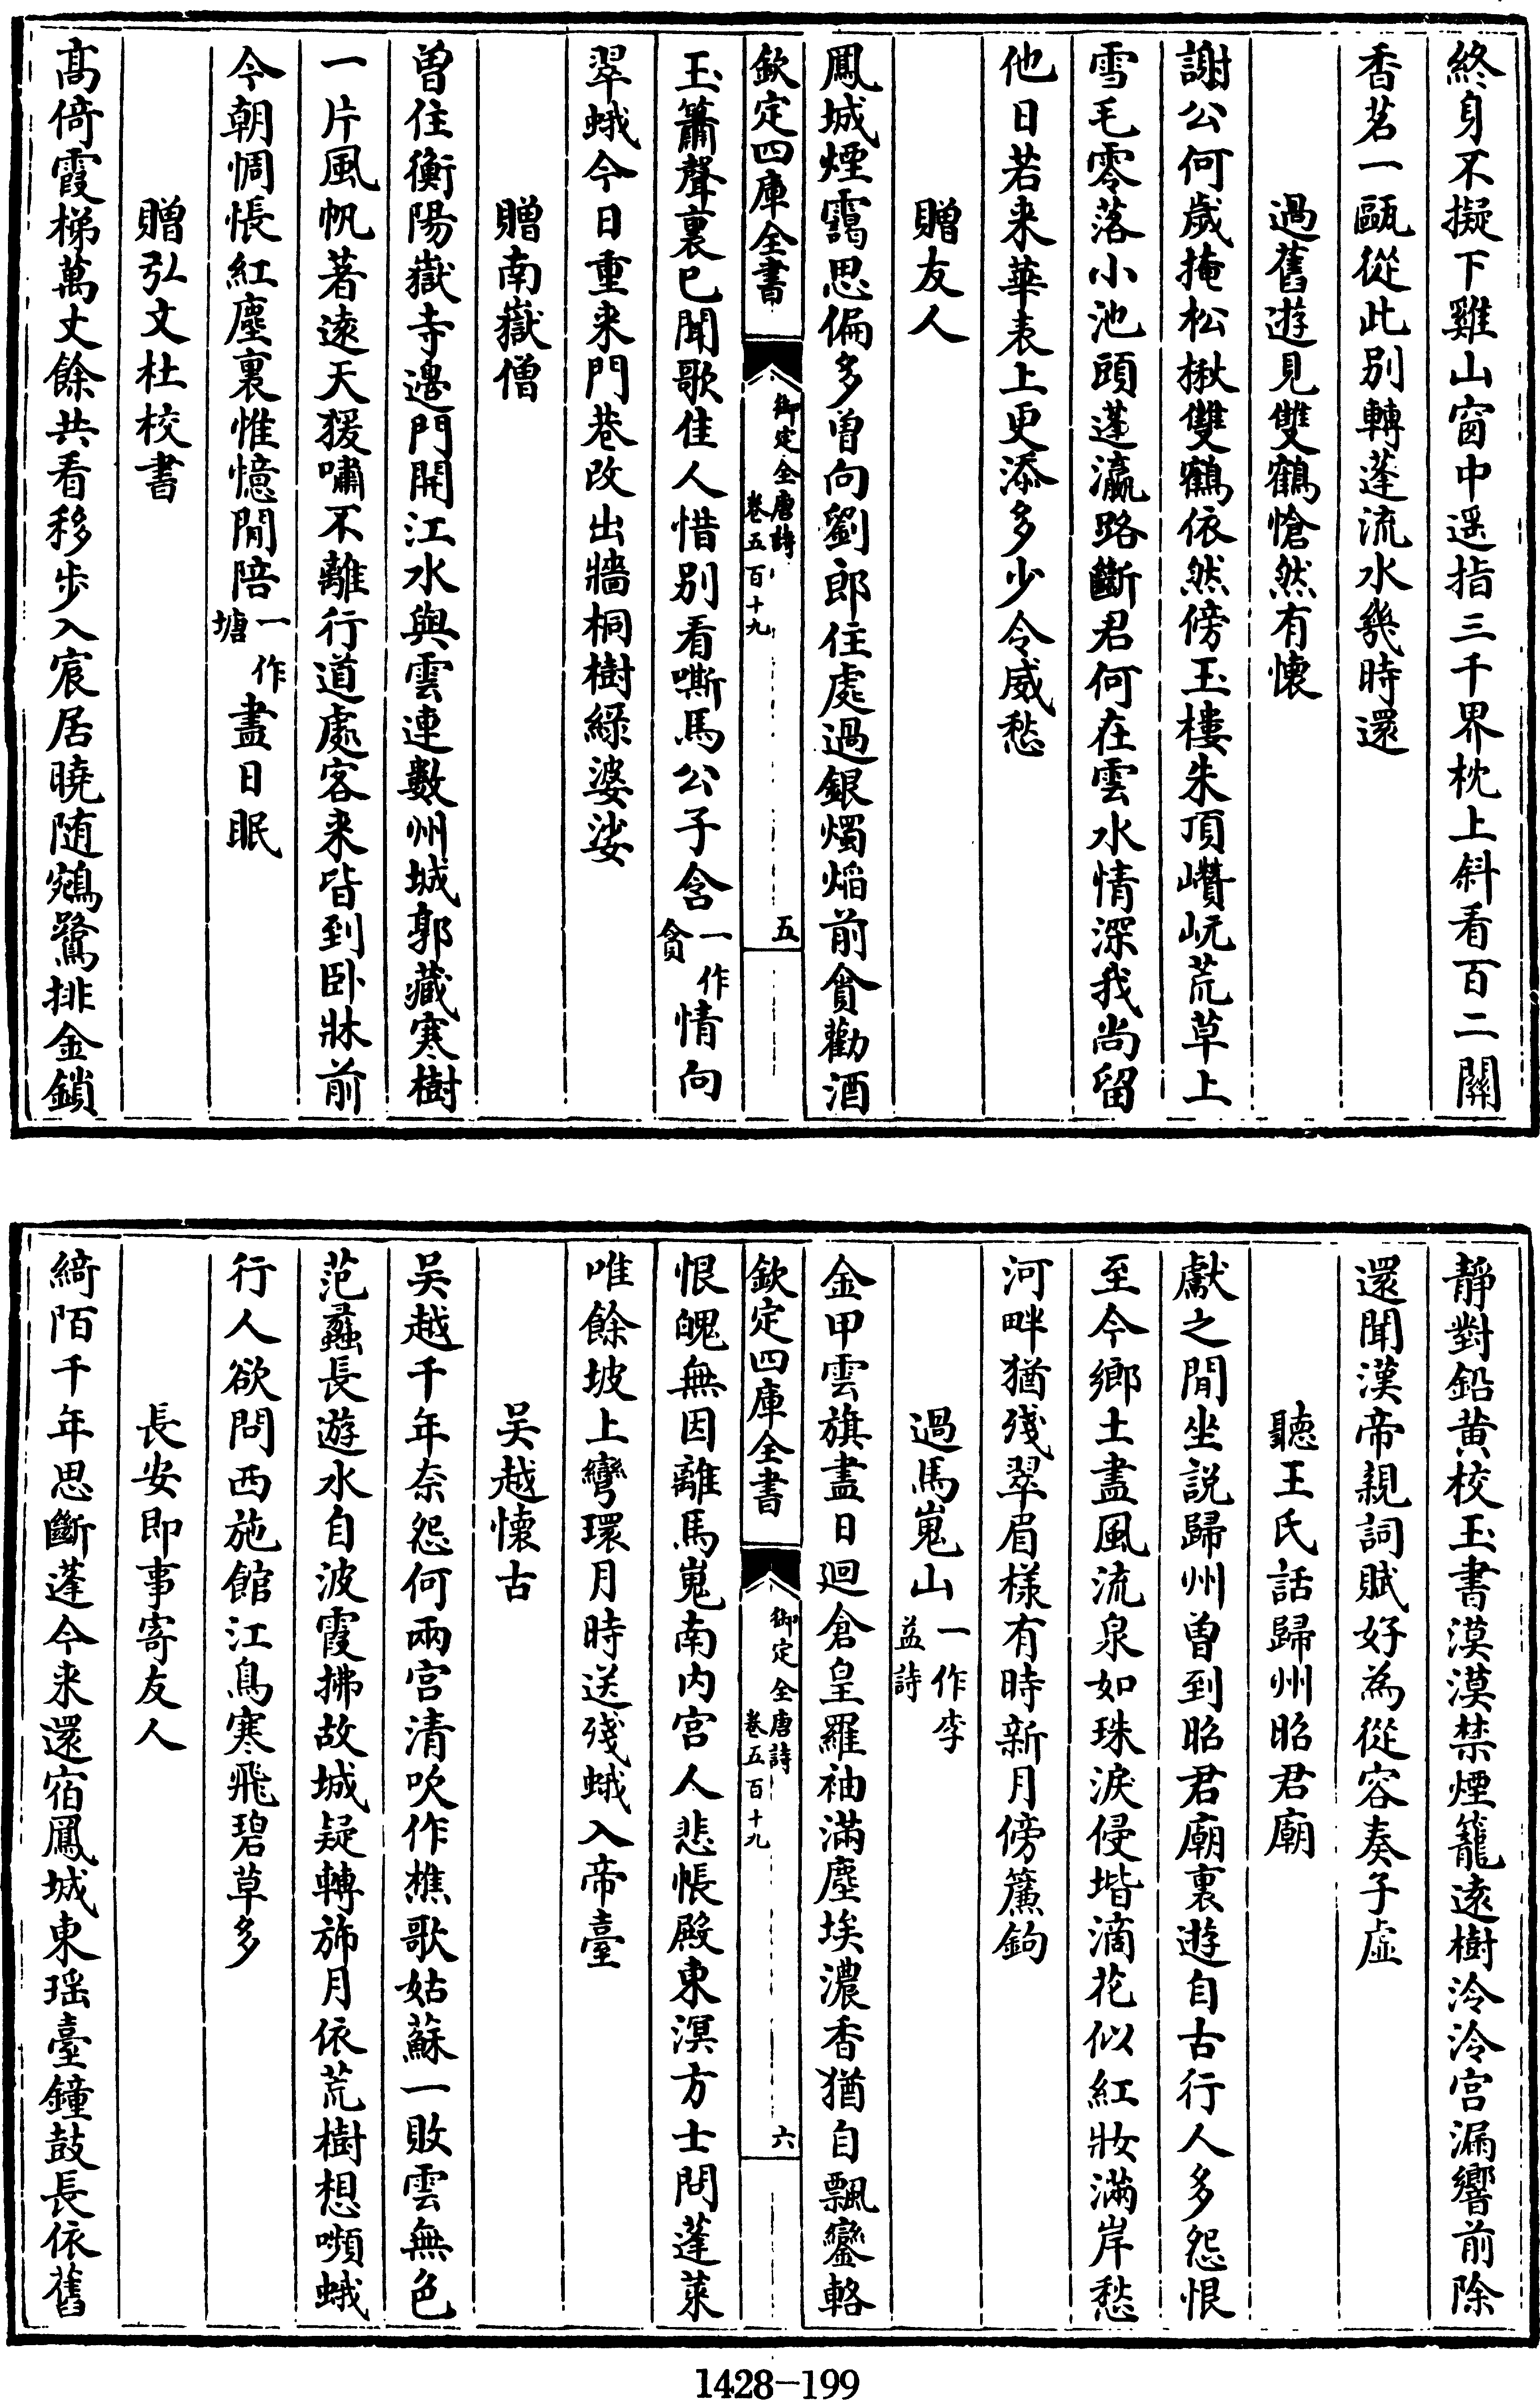 終身不擬下雞山窗中遥指三千界枕上斜看百二關
香茗一甌從此别轉蓬流水幾時還
過舊遊見雙鶴愴然有懷
謝公何歲掩松楸雙鶴依然傍玉樓朱頂巑岏荒草上
雪毛零落小池頭蓬瀛路斷君何在雲水情深我尚留
他日若来華表上更添多少令威愁
贈友人
鳳城煙靄思偏多曽向劉郎住處過銀燭焰前貪勸酒
欽定四庫全書
御定全唐詩
卷五百十九
五
玉簫聲裏已聞歌佳人惜别看嘶馬公子含一作貪情向
翠蛾今日重来門巷改出牆桐樹緑婆娑
贈南嶽僧
曽住衡陽嶽寺邊門開江水與雲連數州城郭藏寒樹
一片風帆著遠天猨嘯不離行道處客来皆到卧牀前
今朝惆悵紅塵裏惟憶閒陪一作塘盡日眠
贈弘文杜校書
髙倚霞梯萬丈餘共看移步入宸居曉随鵷鷺排金鎖
靜對鉛黄校玉書漠漠禁煙籠遠樹泠泠宫漏響前除
還聞漢帝親詞賦好為從容奏子虚
聽王氏話歸州昭君廟
獻之閒坐説歸州曽到昭君廟裏遊自古行人多怨恨
至今鄉土盡風流泉如珠淚侵堦滴花似紅妝滿岸愁
河畔猶殘翠眉様有時新月傍簾鉤
過馬嵬山一作李益詩
金甲雲旗盡日迴倉皇羅袖滿塵埃濃香猶自飄鑾輅
欽定四庫全書
御定全唐詩
卷五百十九
六
恨魄無因離馬嵬南内宫人悲帳殿東溟方士問蓬萊
唯餘坡上彎環月時送殘蛾入帝臺
吴越懷古
吴越千年奈怨何兩宫清吹作樵歌姑蘇一敗雲無色
范蠡長遊水自波霞拂故城疑轉斾月依荒樹想嚬蛾
行人欲問西施館江鳥寒飛碧草多
長安即事寄友人
綺陌千年思斷蓬今来還宿鳳城東瑶臺鐘鼓長依舊
1428—199